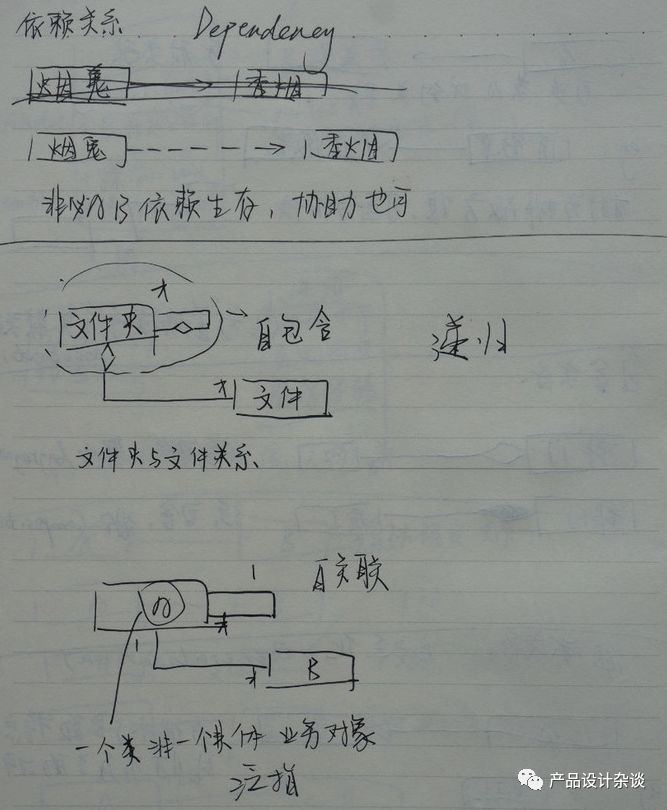 依赖关系 Dependency
烟鬼 香烟
烟鬼 香烟
非必须依赖生存，协助也可
*
文件夹 自包含 递归
* 文件
文件夹与文件关系
1 自关联
*
1
* B
一个类非一个具体业务对象
泛指
产品设计杂谈